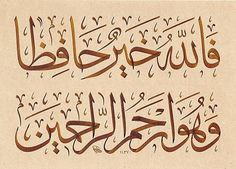 فَاللّٰهُ خَيْرٌ حَافِظًا
وَهُوَ اَرْحَمُ الرَّاحِمِينَ